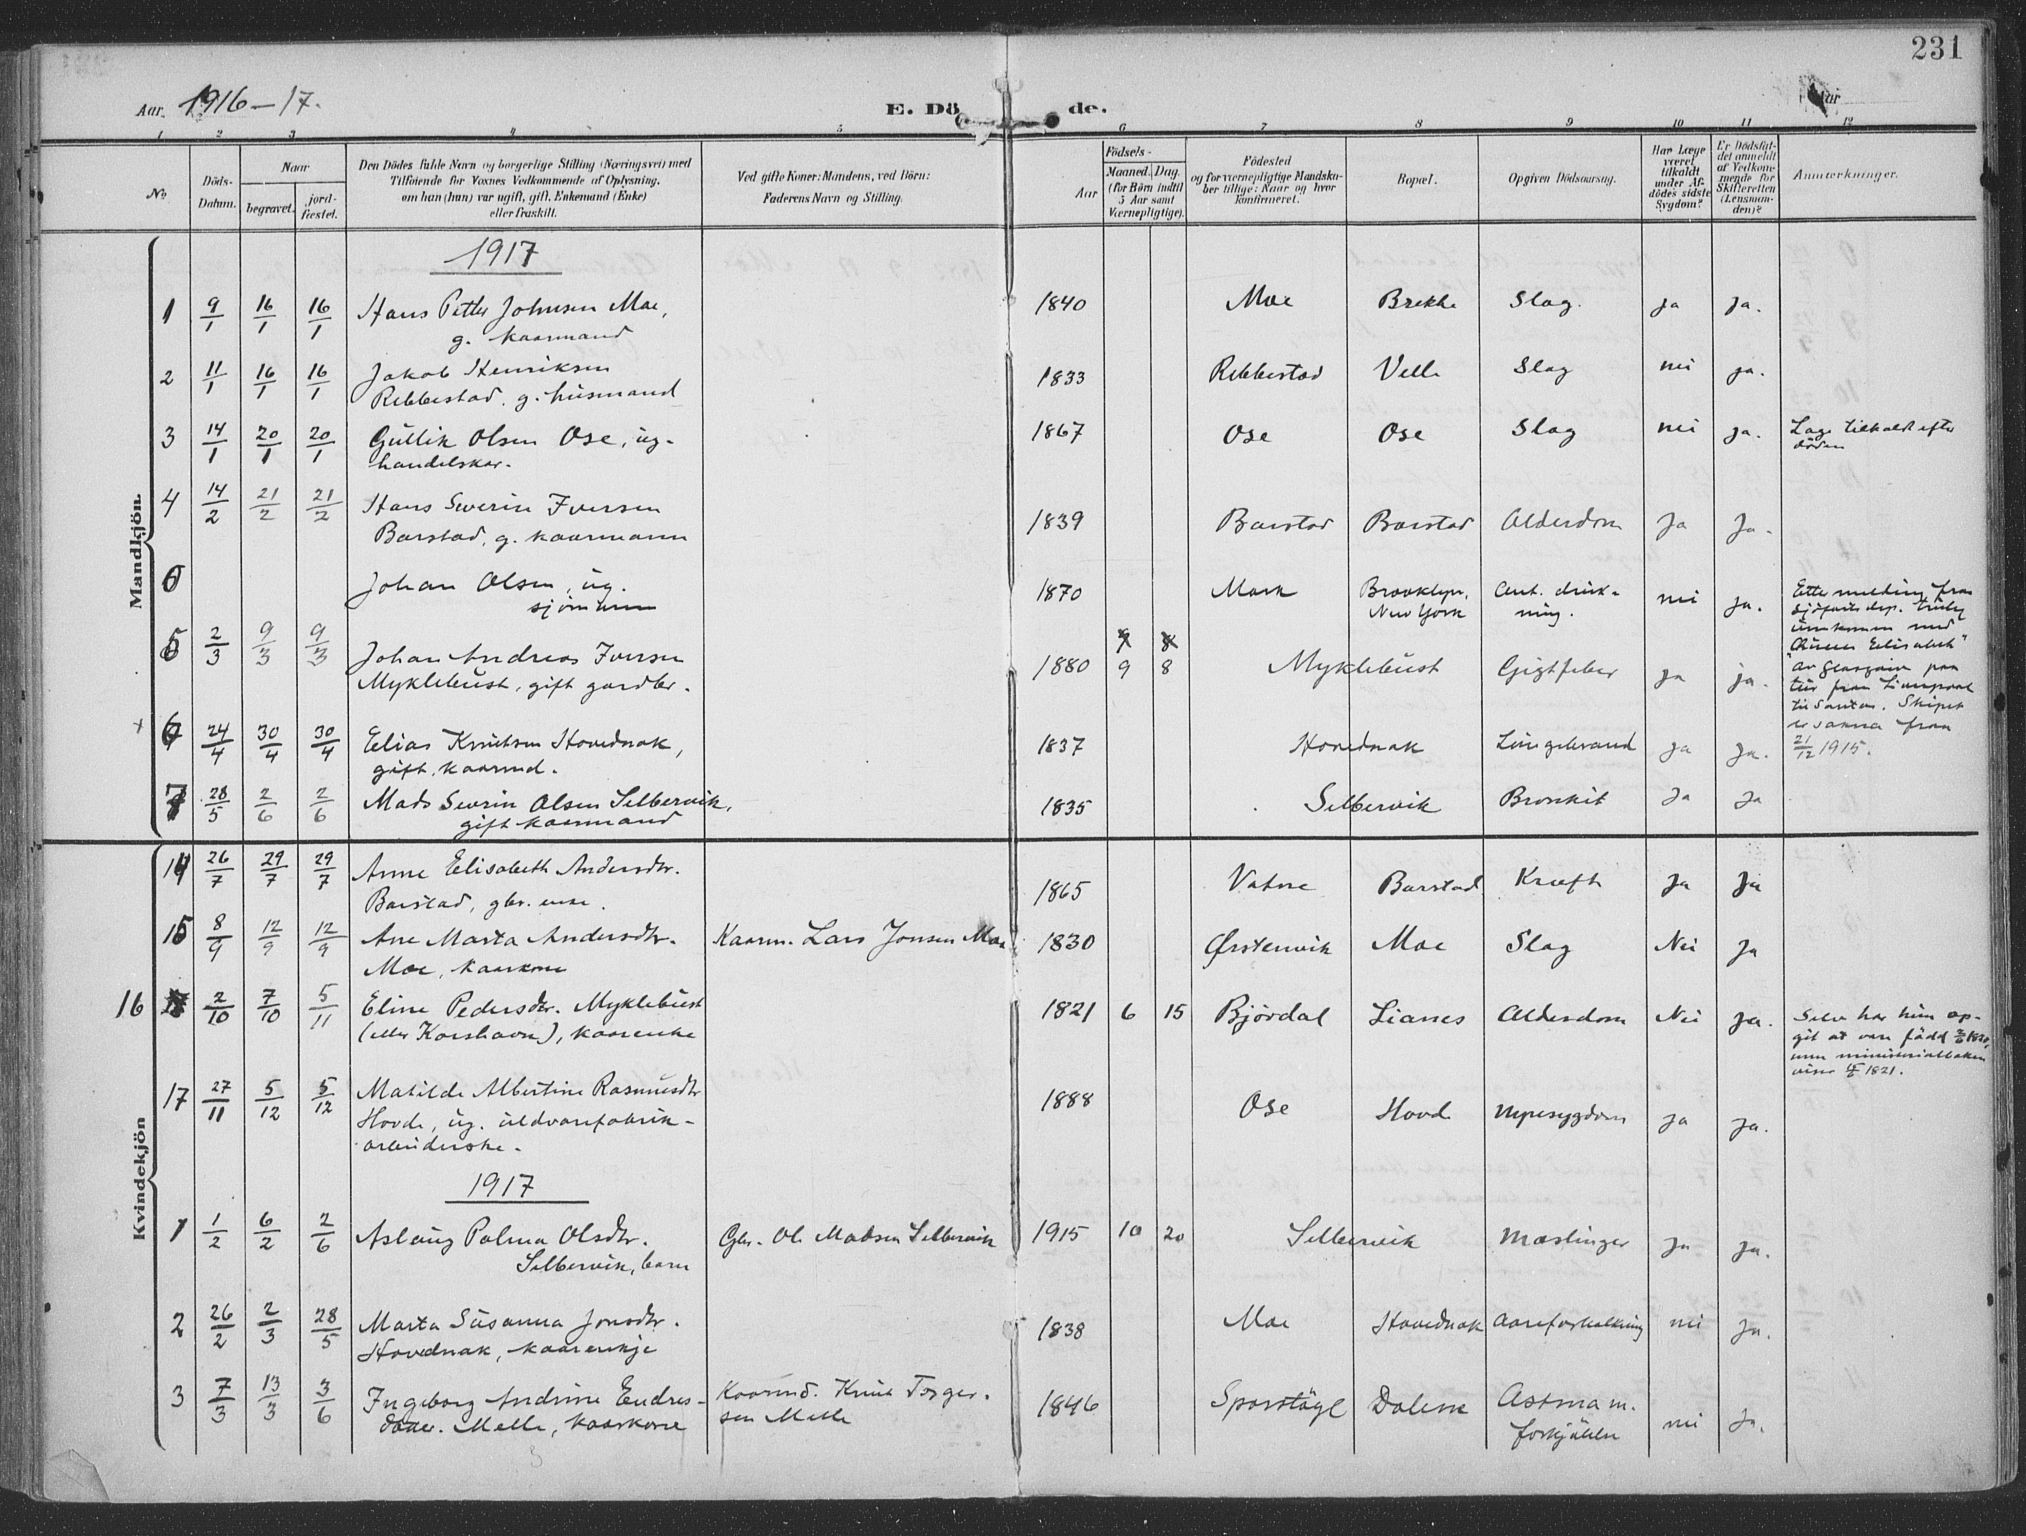 231
Aar. 1916-17.
E. Dö de.
Aar
1 2 3 4 5 6 7 8 9 10 11 12
No
Döds-Datum.
Naar
begravet.
jord-fæstet.
Den Dödes fulde Navn og borgerlige Stilling (Næringsvei) med
Tilföiende for Voxnes Vedkommende af Oplysning,
om han (hun) var ugift, gift, Enkemand (Enke)
eller fraskilt.
Ved gifte Koner: Mandens, ved Börn:
Faderens Navn og Stilling.
Födsels-
Aar
Maaned. Dag.
(for Börn indtil
5 Aar samt
Værnepligtige).
Födested
og for værnepligtige Mandskaber tillige: Naar og hvor
konfirmeret.
Bopæl.
Opgiven Dödsaarsag.
Har Læge
været
tilkaldt
under Af-
dödes sidste
Sygdom?
Er Dödsfal-
det anmeldt
af Vedkom-
mende for
Skifteretten
(Lensman-
den)?
Anmærkninger.
Mandkjön.
1917
1 9/1 16/1 16/1 Hans Petter Johnsen Moe, 1840 Moe Brekke Slag. ja ja.
g. kaarmand
2 11/1 16/1 16/1 Jakob Henriksen 1833 Rebbestad Velle Slag nei ja.
Rebbestad, g. husmand
3 14/1 20/1 20/1 Gullik Olsen Ose, ug. 1867 Ose Ose Slag nei ja. Læge tilkaldt efter
handelskar. döden
4 14/2 21/2 21/2 Hans Severin Iversen 1839 Barstad Barstad Alderdom Ja Ja.
Barstad, g. kaarmann
6 Johan Olsen, ug. 1870 Mork Brooklyn, Ant. druk- nei ja. Etter melding fraa
sjømann New York ning. sjøfartsdep. truleg
umkomen med
5 2/3 9/3 9/3 Johan Andreas Iversen 1880 9 8 Myklebust Gigtfeber ja ja. "Queen Elisabeth"
Myklebust, gift gardbr. av Glasgow paa
tur fraa Liverpool
til Santos. Skipet
6 24/4 30/4 30/4 Elias Knutsen Hovednak, 1837 Hovednak Lungebrand ja ja. er sakna fraa
gift, kaarmd. 21/12 1915.
7 28/5 2/6 2/6 Mads Sevrin Olsen Selbervik, 1835 Selbervik Bronkit Ja Ja
gift kaarmand
Kvindekjön
14 26/7 29/7 29/7 Anne Elisabeth Andersdtr. 1865 Vatne Barstad Kræft Ja Ja
Barstad, gbr. enke.
15 8/9 12/9 12/9 Ane Marta Andersdtr. Kaarm. Lars Jonsen Moe 1830 Ørstenvik Moe Slag Nei Ja
Moe, kaarkone
16 2/10 7/10 5/11 Eline Pedersdtr. Myklebust 1821 6 15 Björdal Lianes Alderdom Nei ja. Selv har hun op-
(eller Korshavn), kaarenke git at være född 1820,
men ministerialboken
viser 15/6 1821.
17 27/11 5/12 5/12 Matilde Albertine Rasmusdtr 1888 Ose Hovd Nyresygdom ja ja.
Hovde, ug. uldvarefabrik-
arbeiderske.
1917
1 1/2 6/2 2/6 Aslaug Palma Olsdtr. Gbr. Ole Madsen Selbervik 1915 10 20 Selbervik Mæslinger ja ja.
Selbervik, barn
2 26/2 2/3 28/5 Marta Susanna Jonsdtr. 1838 Moe Hovednak Aareforkalkning nei ja.
Hovednak, kaarenkje
3 7/3 13/3 3/6 Ingeborg Andrine Endres- Kaarmd. Knut Torger- 1846 Sporstöyl Dalene Astma m. nei Ja.
datter. Melle, kaarkone sen Melle forkjölelse